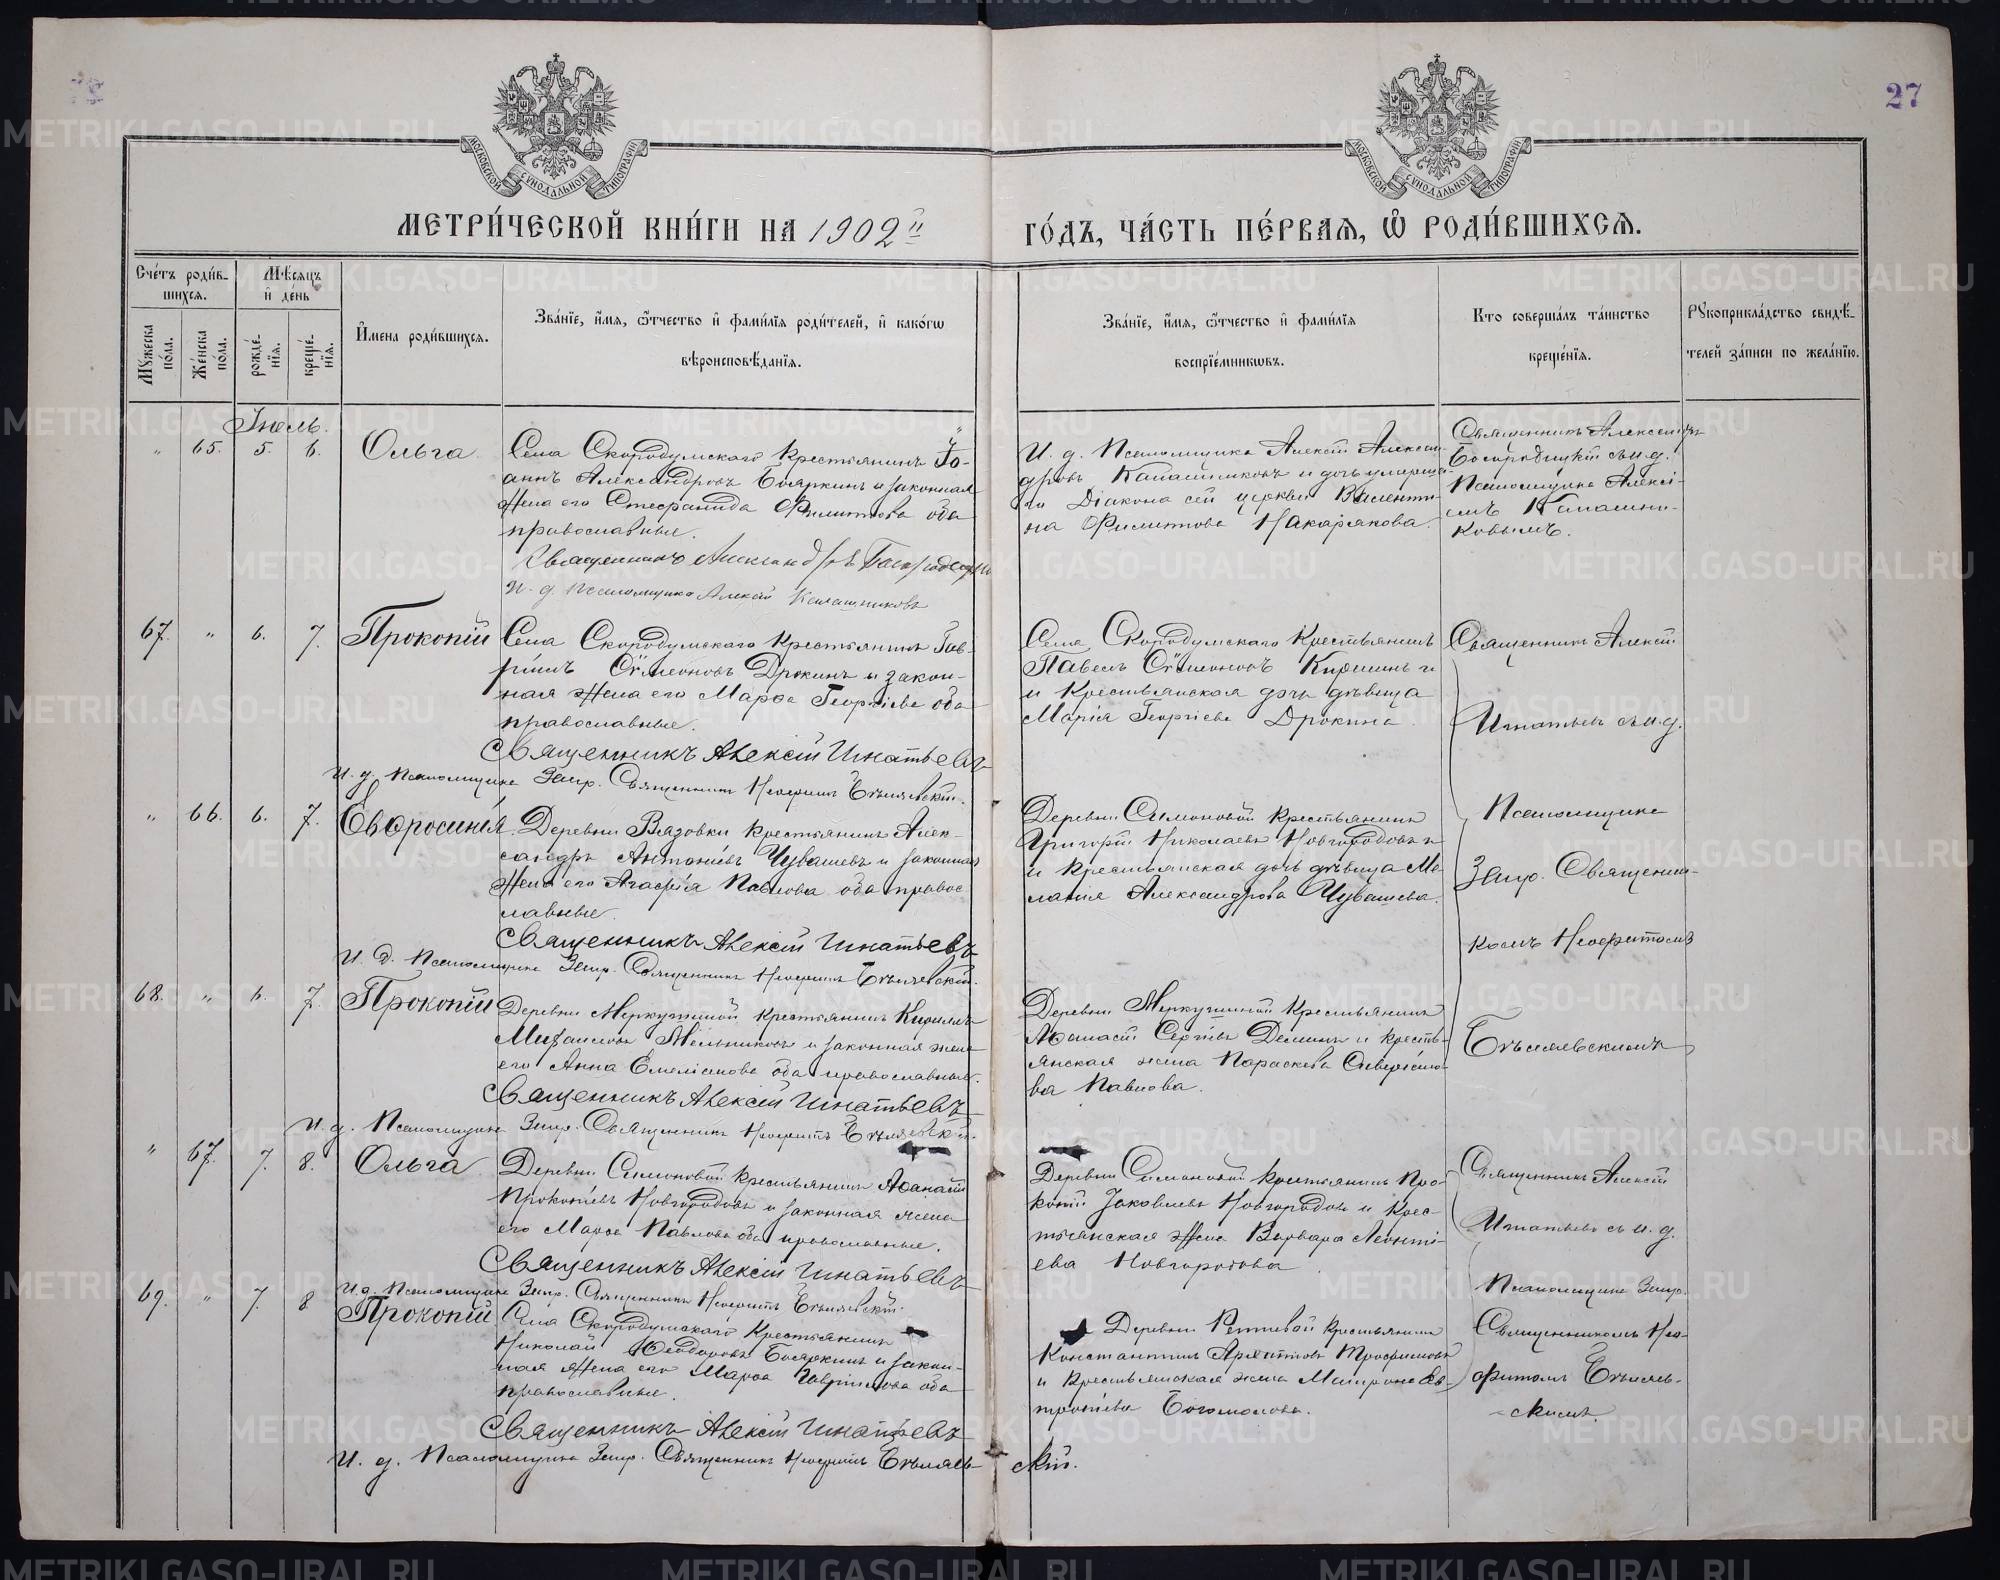 27
МОСКОВСКОЙ СѴНОДАЛЬНОЙ ТИПОГРАФІИ
МОСКОВСКОЙ СѴНОДАЛЬНОЙ ТИПОГРАФІИ
МЕТРИ́ЧЕСКОЙ КНИ́ГИ НА 1902й
ГО́ДЪ, ЧА́СТЬ ПЕ́РВАѦ, Ѡ РОДИ́ВШИХСѦ.
Сче́тъ роди́в-
шихсѧ.
Мꙋ́жеска по́ла.
Же́нска по́ла.
Мѣ́сяцъ
и де́нь
рожде́-
нїѧ.
креще́-
нїѧ.
И҆мена роди́вшихсѧ.
Зва́нїе, и҆́мѧ, ѻ҆́тчество и҆ фами́лїѧ роди́телей, и҆ како́гѡ
вѣроисповѣ́данїѧ.
Зва́нїе, и҆́мѧ, ѻ҆́тчество и҆ фами́лїѧ
воспрїе́мникѡвъ.
Кто соверша́лъ та́инство
креще́нїѧ.
Рꙋкоприкла́дство свидѣ́-
телей за́писи по жела́нїю.
Іюль.
" 65. 5. 6. Ольга
Села Скородумскаго Крестьянинъ Іо-
аннъ Александровъ Бояркинъ и законная
жена его Стефанида Филиппова оба
православные.
Священникъ Александръ Богородицкій
И. д. Псаломщика Алексій Калашниковъ
И. д. Псаломщика Алексій Алексан-
дровъ Калашниковъ и дочь умерша-
го Діакона сей церкви Валенти-
на Филиппова Макарякова.
Священникъ Александръ
Богородицкій съ и. д.
Псаломщика Алексі-
емъ Калашни-
ковымъ.
67. " 6. 7. Прокопій
Села Скородумскаго Крестьянинъ Гав-
ріилъ Сѵмеоновъ Дрокинъ и закон-
ная жена его Марѳа Георгіева оба
православные.
Священникъ Алексій Игнатьевъ
И. д. Псаломщика Запр. Священникъ Неофитъ
Села Скородумскаго Крестьянинъ
Павелъ Сѵмеоновъ
и Крестьянская дочь дѣвица
Марія Георгіева Дрокина.
Священникъ Алексій
Игнатьевъ съ и. д.
Псаломщика
Запр. Священни-
комъ Неофитомъ
" 66. 6. 7. Евфросинія
Деревни Вязовки Крестьянинъ Алек-
сандръ Антоніевъ Чувашевъ и законная
жена его Агафія Павлова оба правос-
лавные.
Священникъ Алексій Игнатьевъ
И. д. Псаломщика Запр. Священникъ Неофитъ
Деревни Симоновой Крестьянинъ
Григорій Николаевъ Новгородовъ
и Крестьянская дочь дѣвица Ме-
ланія Александрова Чувашева.
68. " 6. 7. Прокопій
Деревни Меркушиной Крестьянинъ Кириллъ
Михаиловъ Мельниковъ и законная жена
его Анна Емеліанова оба православные.
Священникъ Алексій Игнатьевъ
И. д. Псаломщика Запр. Священникъ Неофитъ
Деревни Меркушиной Крестьянинъ
Аѳанасій Сергіевъ Деминъ и кресть-
янская жена Параскева
ва Павлова.
" 67. 7. 8. Ольга
Деревни Симоновой Крестьянинъ Аѳанасій
Прокопіевъ Новгородовъ и законная жена
его Марѳа Павлова оба православные.
Священникъ Алексій Игнатьевъ
И. д. Псаломщика Запр. Священникъ Неофитъ
Деревни Симоновой Крестьянинъ Про-
копій Іаковлевъ Новгородовъ и Крес-
тьянская жена Варвара Леонті-
ева Новгородова
Священникъ Алексій
Игнатьевъ съ и. д.
Псаломщика Запр.
Священникомъ Нео-
фитомъ
скимъ.
69. " 7. 8 Прокопій
Села Скородумскаго Крестьянинъ
Николай Ѳеодоровъ Бояркинъ и закон-
ная жена его Марѳа Гавріилова оба
православные.
Священникъ Алексій Игнатьевъ
И. д. Псаломщика Запр. Священникъ Неофитъ
скій.
Деревни Крестьянинъ
Константинъ Трофимовъ
и Крестьянская жена Матрона Ев-
тропіева Богомолова.